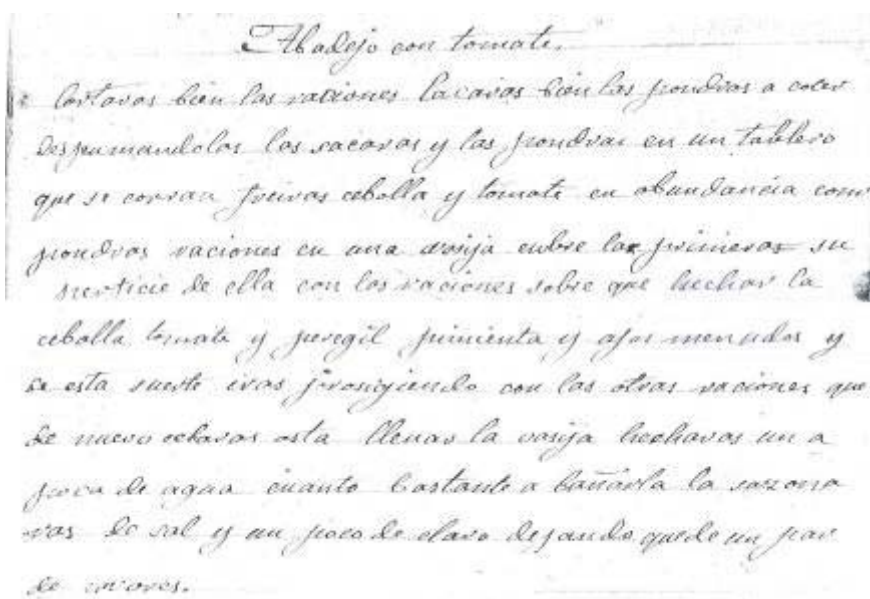 Abadejo con tomate.
Cortaras bien las raciones lacaras bien las pondras a cocer
despumandolas las sacaras y las pondras en un tablero
que se corran freiras cebolla y tomate en abundancia como
pondras raciones en una vasija cubre las primeras su
perticie de ella con las raciones sobre que hechar la
cebolla tomate y peregil pimienta y ajos menudos y
de esta suerte iras prosigiendo con las otras raciones que
de nuevo echaras asta llenar la vasija hecharas un a
poca de agua cuanto bastante a bañarla la sazona
ras de sal y un poco de clavo dejando quede un par
de